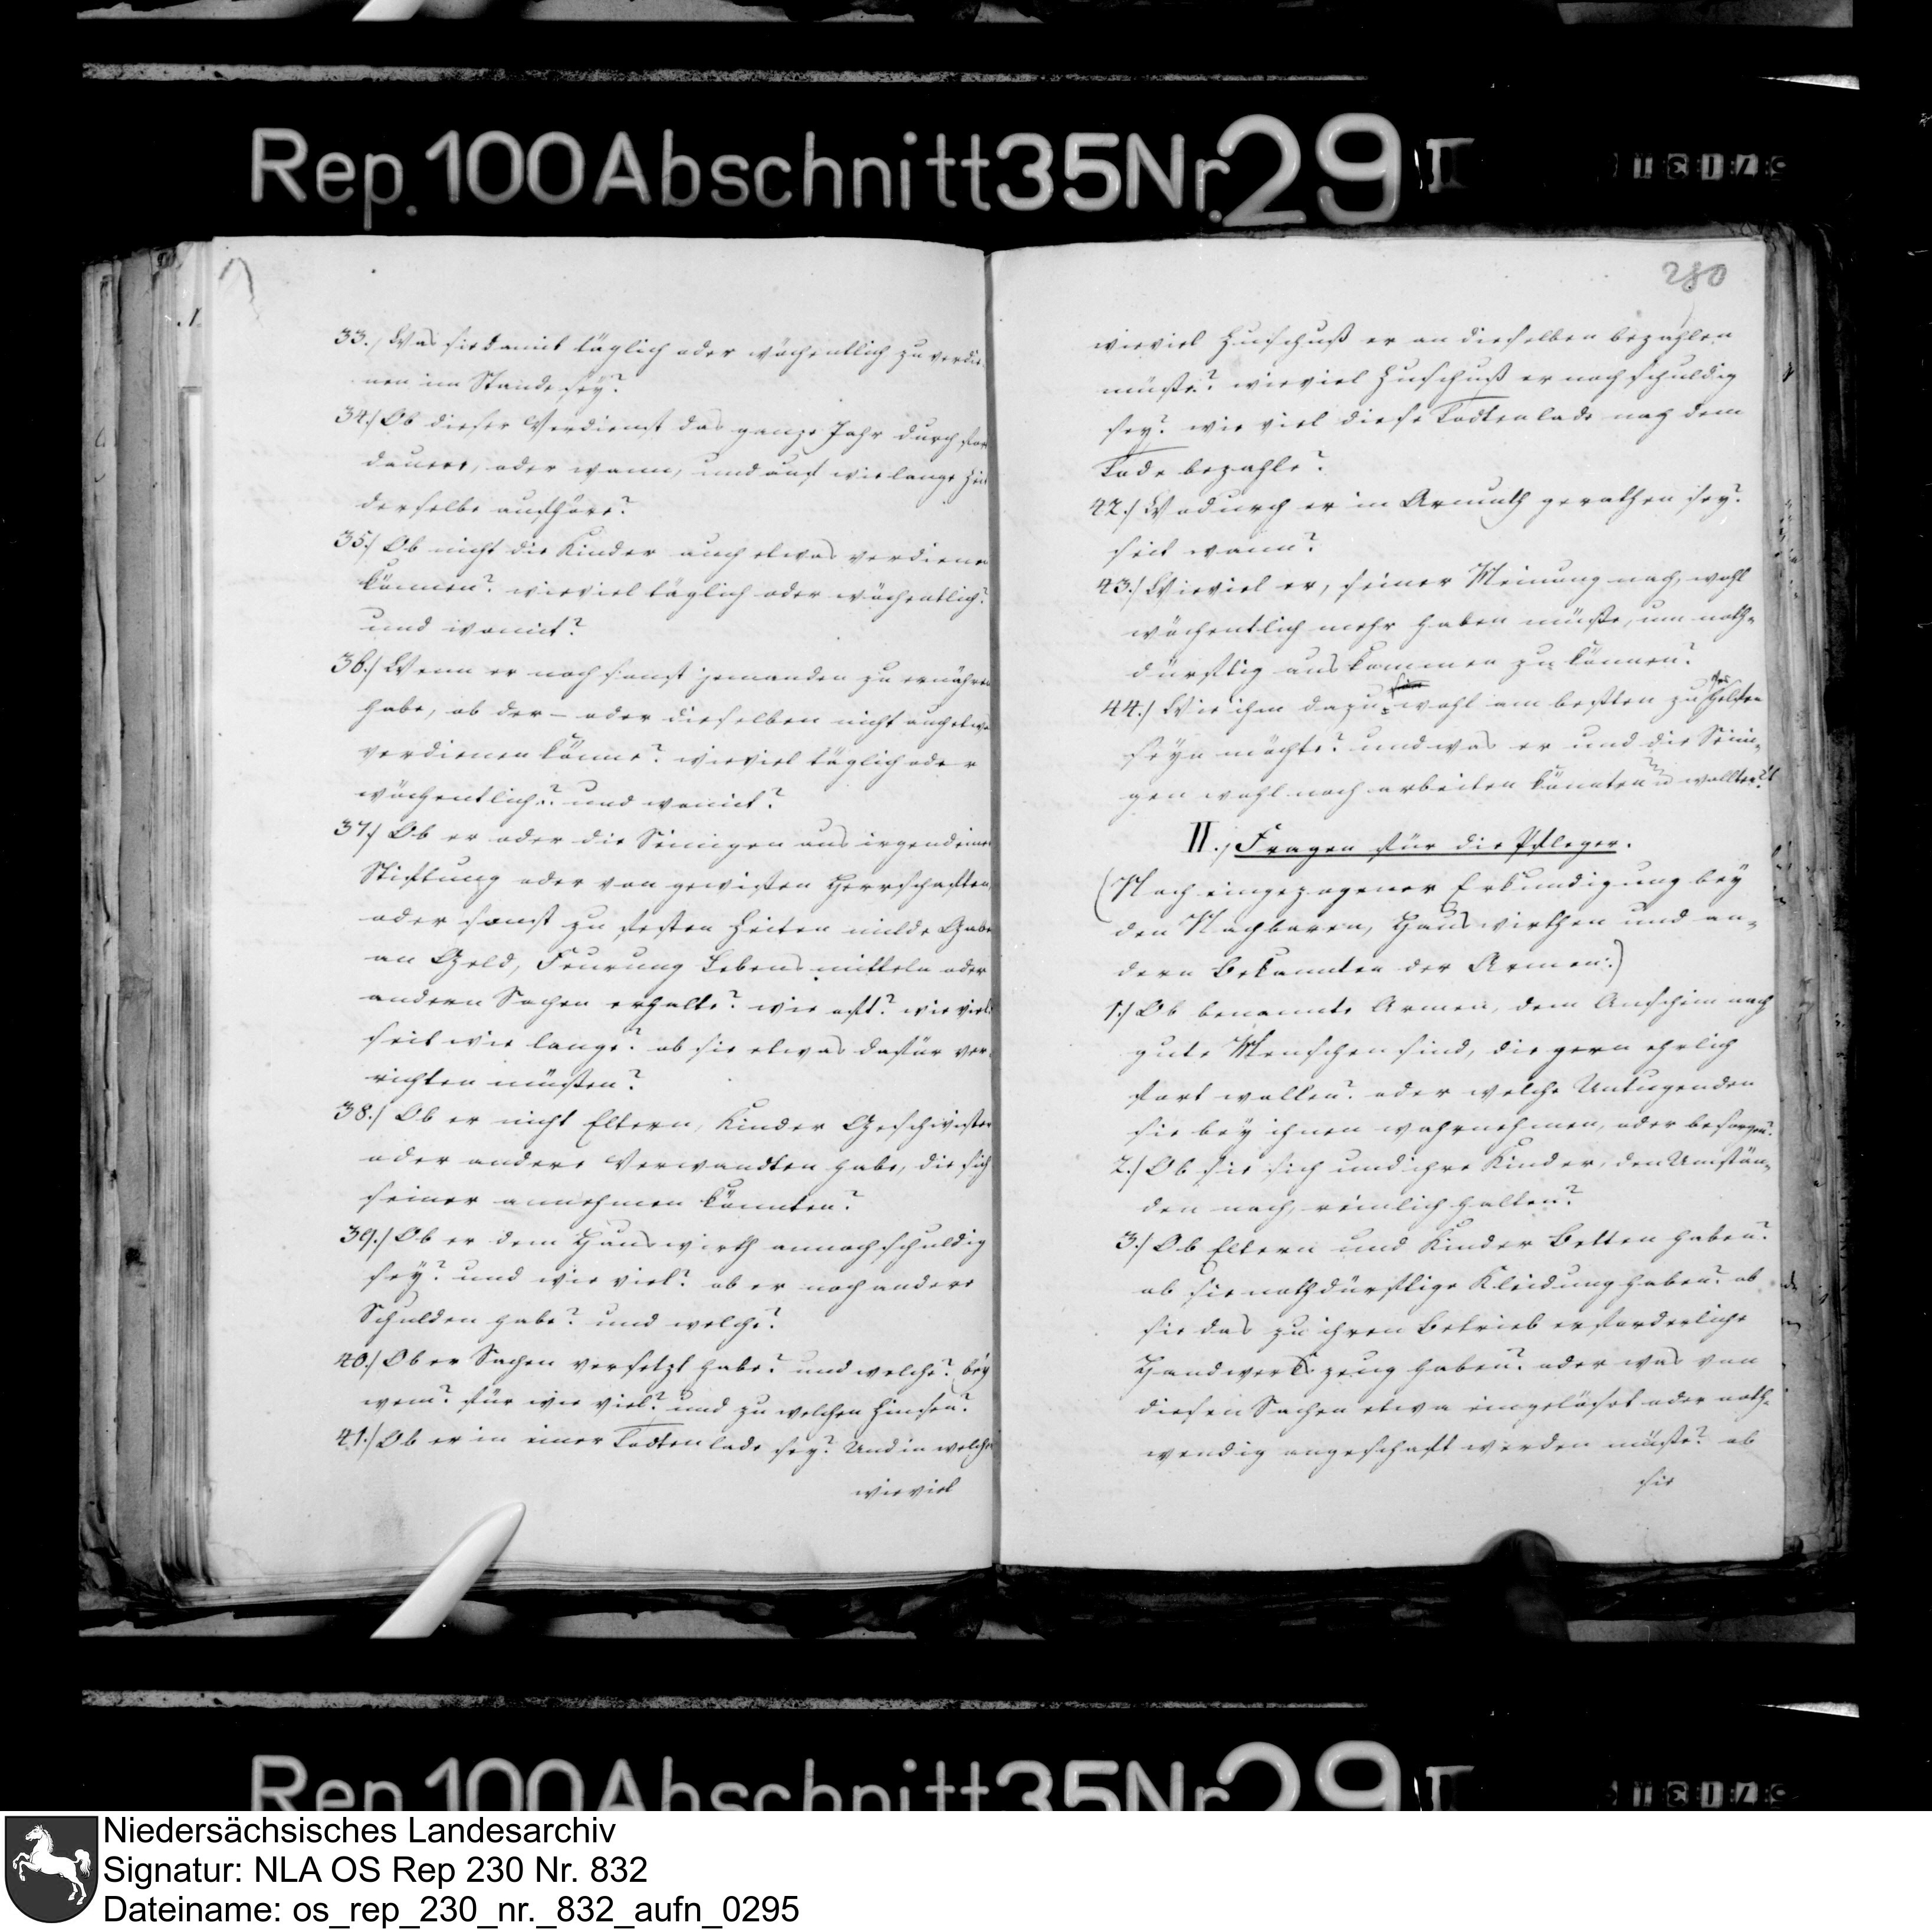 Rep. 100 Abschnitt 35 Nr. 29 I
33./ Was sie damit täglich oder wöchentlich zu verdie-
nen im Stande sey?
34./ Ob dieser Verdienst das ganze Jahr durch fort
dauere, oder wann, und auf wie lange Zeit
derselbe aufhöre?
35./ Ob nicht die Kinder auch etwas verdienen
können? wieviel täglich oder wöchentlich?
und womit?
36./ Wenn er noch sonst jemanden zu ernähren
habe, ob der- oder dieselben nicht auch etwas
verdienen könne? wieviel täglich oder
wöchentlich? und womit?
37./ Ob er oder die Seinigen aus irgend einer
Stiftung oder von gewissen Herrschaften,
oder sonst zu festen Zeiten milde Gaben
an Geld, Feurung Lebensmitteln oder
andern Sachen erhalte? wie oft? wie viel?
seit wie lange? ob sie etwas dafür ver-
richten müssen?
38./ Ob er nicht Eltern, Kinder Geschwister
oder andere Verwandten habe, die sich
seiner annehmen könnten?
39./ Ob er dem Hauswirth annoch schuldig
sey? und wie viel? ob er noch andere
Schulden habe? und welche?
40./ Ob er Sachen versetzt habe? und welche? bey
wem? für wie viel? und zu welchen Zinsen?
41./ Ob er in einer Todtenlade sey? Und in welcher
wieviel
280
wieviel Zuschuß er an dieselben bezahlen
müsse? wieviel Zuschuß er noch schuldig
sey? wie viel diese Todtenlade nach dem
Tode bezahle?
42./ Wodurch er in Armuth gerathen sey?
seit wann?
43./ Wieviel er, seiner Meinung nach, wohl
wöchentlich mehr haben müsse, um noth-
dürftig auskommen zu können?
44./ Wie ihm dazu wohl am besten zu helfen
seyn möchte? und was er und die Seini-
gen wohl noch arbeiten könnten u wollten?
II., Fragen für die Pfleger.
(Nach eingezogener Erkundigung bey
den Nachbaren, Hauswirthen und an-
dern Bekannten der Armen:)
1./ Ob benannte Armen, dem Anschein nach
gute Menschen sind, die gern ehrlich
fort wollen? oder welche Untugenden
sie bey ihnen wahrnehmen, oder besorgen?
2./ Ob sie sich und ihre Kinder, den Umstän-
den nach, reinlich halten?
3./ Ob Eltern und Kinder Betten haben?
ob sie nothdürftige Kleidung haben? ob
sie das zu ihren Betrieb erforderliche
Handwerkszeug haben? oder was von
diesen Sachen etwa eingelöset oder noth-
wendig angeschaft werden müsse? ob
sie
Rep. 100 Abschnitt 35 Nr. 29 I
Niedersächsisches Landesarchiv
Signatur: NLA OS Rep 230 Nr. 832
Dateiname: os_rep_230_nr._832_aufn_0295